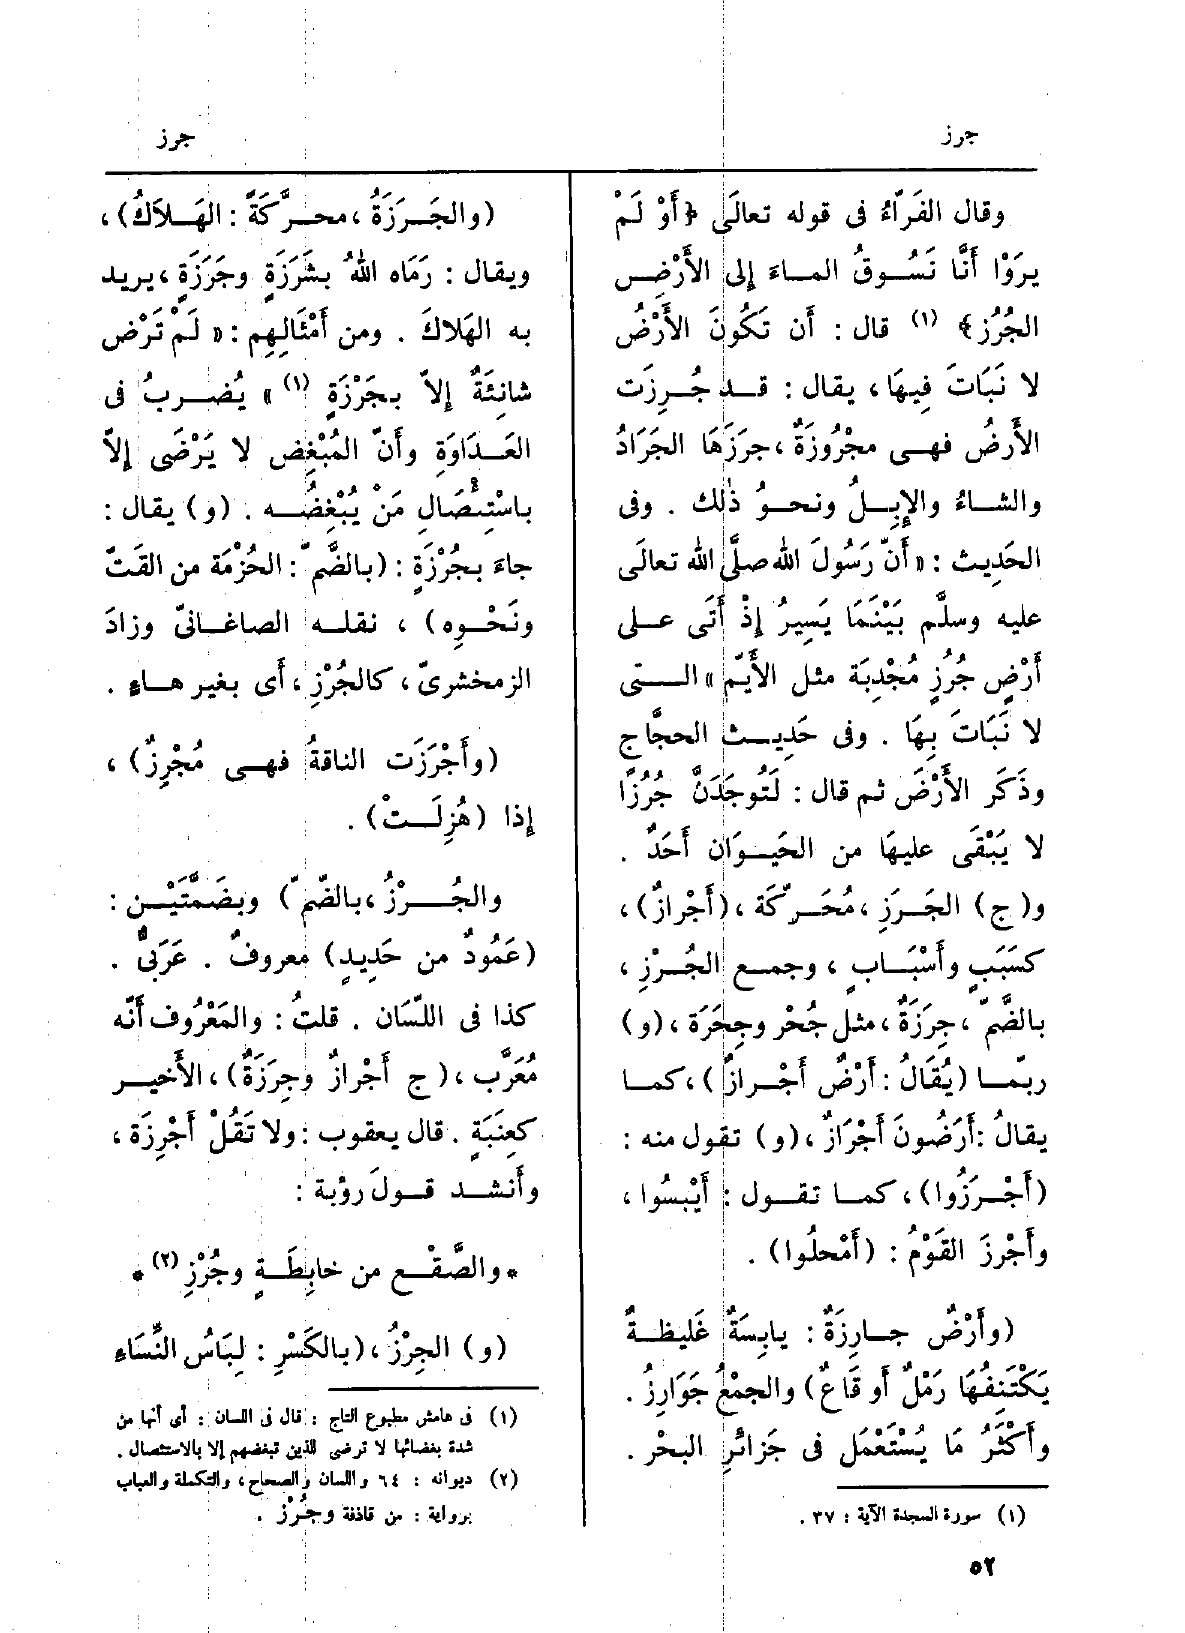 جرز
جرز
وقال الفَرّاءُ فى قوله تعالَى ﴿أَوْ لَمْ
يرَوْا أَنَّا نَسُوقُ الماءَ إلى الأَرْضِ
الجُرُزِ﴾ (١) قال : أَن تَكُونَ الأَرْضُ
لا نَبَاتَ فِيهَا، يقال : قد جُرِزَت
الأَرضُ فهى مجْرُوزَةٌ، جرَزَهَا الجَرَادُ
والشاءُ والإبِلُ ونحوُ ذٰلك . وفى
الحَدِيث : «أَنّ رَسُولَ الله صلَّى الله تعالَى
عليه وسلَّم بَيْنَمَا يَسِيرُ إذْ أَتَى على
أَرْضٍ جُرُزٍ مُجْدِبَة مثل الأَيِّم» التى
لا نَبَاتَ بِهَا . وفى حَدِيث الحجَّاج
وذَكَر الأَرْضَ ثم قال : لَتُوجَدَنَّ جُرُزًا
لا يَبْقَى عليهَا من الحَيوَان أَحَدٌ .
و(ج) الجَرَزِ، مُحَرّكَة، (أَجْرازٌ)،
كسَبَبٍ وأَسْبَابٍ، وجمع الجُرْزِ،
بالضّمّ، جِرَزَةٌ، مثل جُحْر وجِحَرَة، (و)
ربّما (يُقَالُ : أَرْضٌ أَجْرازٌ)، كما
يقالُ : أَرَضُونَ أَجْرَازٌ، (و) تقول منه :
(أَجْرَزُوا)، كما تقول : أَيْبسُوا،
وأَجْرزَ القَوْمُ : (أَمْحلُوا) .
(وأَرْضٌ جارِزَةٌ : يابِسَةٌ غَلِيظَةٌ
يَكْتَنِفُهَا رَمْلٌ أَو قَاعٌ) والجمْعُ جَوَارِزُ .
وأَكْثَرُ مَا يُسْتَعْمَل فى جَزائرِ البحْر .
(١) سورة السجدة الآية : ٢٧ .
(والجَرَزَةُ، محرَّكَةً : الهَلاَكُ)،
ويقال : رَمَاه اللهُ بشَرَزَةٍ وجَرَزَةٍ، يريد
به الهَلاكَ . ومن أَمْثَالِهِم : «لَمْ تَرْضَ
شانِئَةٌ إلاّ بجَرْزَةٍ (١)» يُضربُ فى
العَداوَةِ وأَنّ المُبْغِض لا يَرْضَى إلاّ
باسْتِئْصَالِ مَنْ يُبْغِضُه . (و) يقال :
جاءَ بجُرْزَةٍ : (بالضّمّ : الحُزْمَة من القَتّ
ونَحْوِه)، نقله الصاغانىّ وزادَ
الزمخشرىّ، كالجُرْزِ، أَى بغير هاءٍ .
(وأَجْرَزَت الناقةُ فهى مُجْرِزٌ)،
إذا (هُزِلَتْ) .
والجُرْزُ، بالضّمّ) وبضَمَّتَيْن :
(عَمُودٌ من حَديدٍ) معروفٌ . عَرَبىٌّ .
كذا فى اللّسَان . قلتُ : والمَعْرُوف أَنّه
مُعَرَّب، (ج أَجْرازٌ وجِرَزَةٌ)، الأَخير
كعِنَبَةٍ . قال يعقوب : ولا تَقُلْ أَجْرِزَة،
وأَنشد قولَ رؤبة :
* والصَّقْع من خابِطَةٍ وجُرْزِ (٢) *
(و) الجِرْزُ، (بالكَسْرِ : لِبَاسُ النِّسَاءِ
(١) فى هامش مطبوع التاج : قال فى اللسان : أى أنها من
شدة بغضائها لا ترضى للذين تبغضهم إلا بالاستئصال .
(٢) ديوانه : ٦٤ واللسان والصحاح، والتكملة والعباب
برواية : من قاذفة وجُرْز .
٥٢